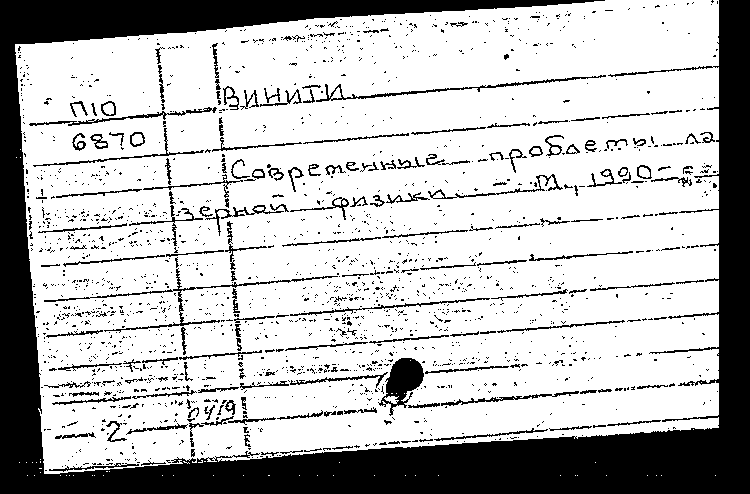 П10
ВИНИТИ.
6870
Современные проблемы ла
зерной физики. - М., 1990-
2